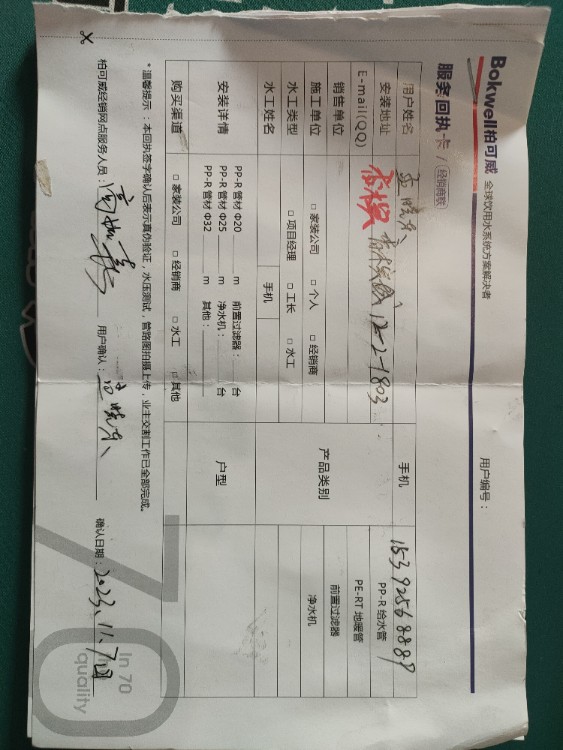 Bokwell柏可威 全球饮用水系统方案解决者
服务回执卡 / 经销商联 用户编号：
用户姓名 手机 15392568889
安装地址 12-2-1803
E-mail(QQ) PP-R 给水管
销售单位 产品类别 PE-RT 地暖管
前置过滤器
施工单位 □ 家装公司 □ 个人 □ 经销商 净水机
水工类型 □ 项目经理 □ 工长 □ 水工
水工姓名 手机
安装详情 PP-R 管材 Φ20 m 前置过滤器： 台 户型
PP-R 管材 Φ25 m 净水机： 台
PP-R 管材 Φ32 m 其他：
购买渠道 □ 家装公司 □ 经销商 □ 水工 □ 其他
*温馨提示：本回执签字确认后表示真伪验证，水压测试，管路图拍摄上传，业主交割工作已全部完成。
柏可威经销网点服务人员： 用户确认： 确认日期：2023.11.7日
70
In 70
quality